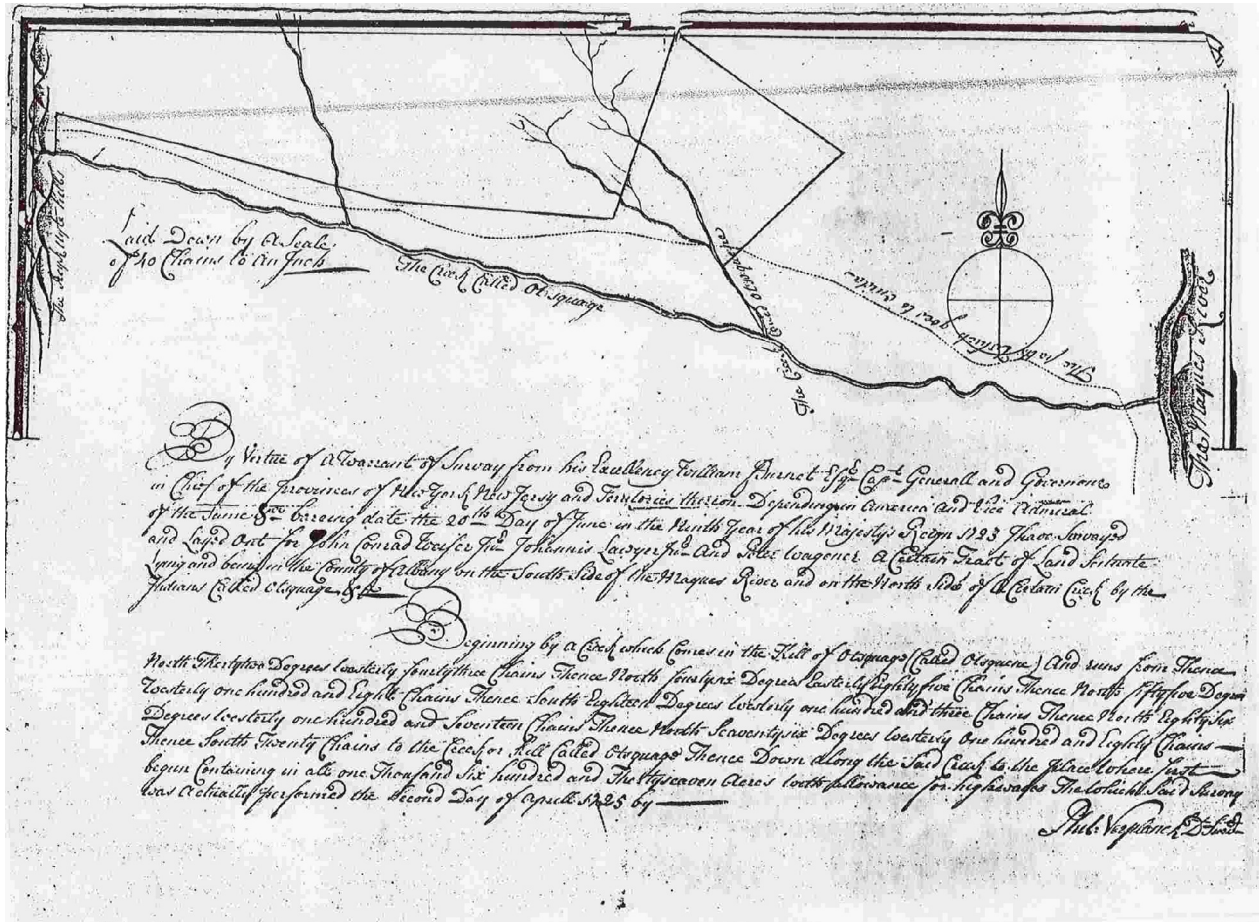 Laid Down by A Scale
of 40 Chains to An Inch
The Creek Called Otsquage
The Creek Called
The path which goes to
The Maques River
By Virtue of A Warrant of Survay from his Excellency William Burnet Esqr. Capt. Generall and Governour
in Chief of the Provinces of New York New Jersy and Teritories thereon Depending in America And Vice Admiral
of the Same &ca. baring date the 20th Day of June in the Ninth Year of his Majestys Reign 1723 I have Survayed
and Layed Out for John Conrad Weiser Junr. Johannis Lawyn Junr. And Peter Wagener A Certain Tract of Land Scituate
Lying and being in the County of Albany on the South Side of the Maques River and on the North Side of A Certain Creek by the
Indians Called Otsquage &ca
Beginning by a Creek which Comes in the Kill of Otsquage (Called Otsquene) And runs from Thence
North Thertytwo Degrees Westerly fourtythree Chains Thence North fourtysix Degrees Easterly Eightyfive Chains Thence North fiftyfive Degrees
Westerly one hundred and Eight Chains Thence South Eighteen Degrees Westerly one hundred and three Chains Thence North Eightysix
Degrees Westerly one hundred and Seventeen Chains Thence North Seaventysix Degrees Westerly One hundred and Eighty Chains
Thence South Twenty Chains to the Creek or Kill Called Otsquage Thence Down Along the Said Creek to the place Where first
begun Containing in all one Thousand Six hundred and Thertyseaven Acres with allowance for highwayes The Which Said Survay
was Actually performed the Second Day of Aprill 1725 by
Phil: Verplanck